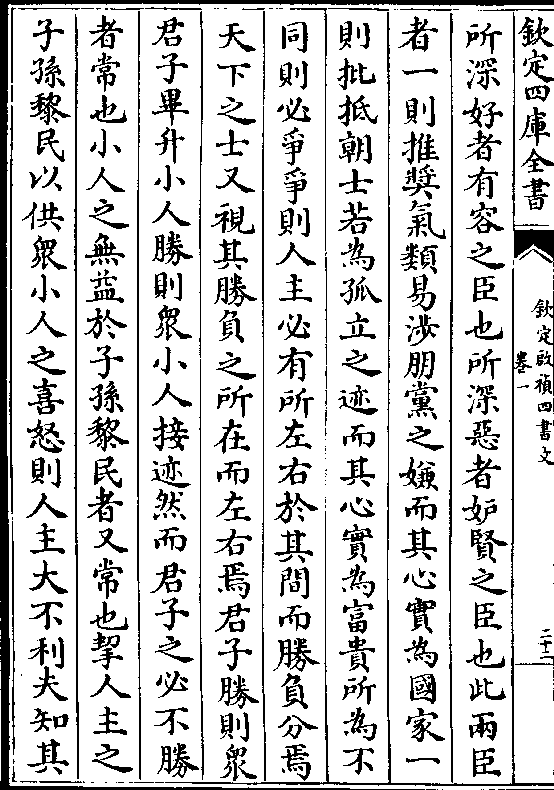 欽定四庫全書
欽定啟禎四書文
卷一
二十二
所深好者有容之臣也所深惡者妒賢之臣也此兩臣
者一則推奬氣類易渉朋黨之嫌而其心實為國家一
則批抵朝士若為孤立之迹而其心實為富貴所為不
同則必爭爭則人主必有所左右於其間而勝負分焉
天下之士又視其勝負之所在而左右焉君子勝則衆
君子畢升小人勝則衆小人接迹然而君子之必不勝
者常也小人之無益於子孫黎民者又常也挈人主之
子孫黎民以供衆小人之喜怒則人主大不利夫知其